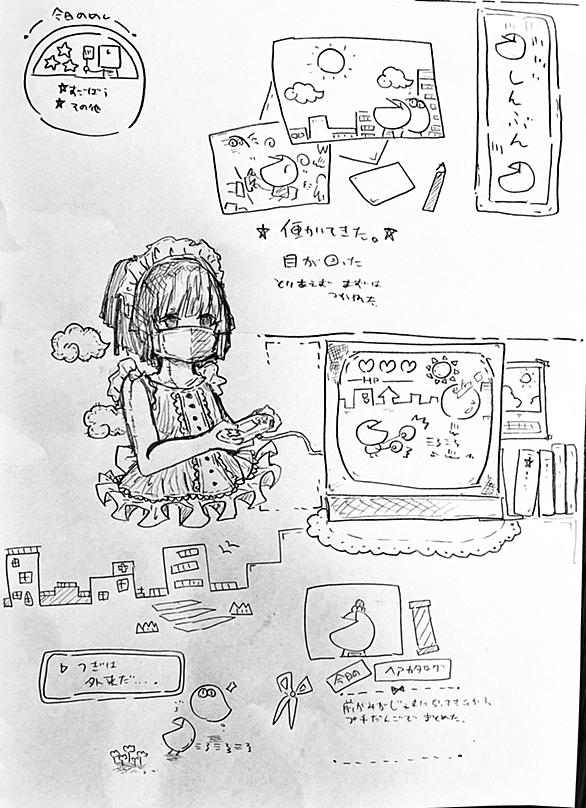 今日のめし
★すごばう
★その他
しんぶん
★働いてきた。★
目が回った
とりあえずまずは
つかれた
HP
▷つぎは
外来だ....
今日の
ヘアカタログ
前がみがじゃまになってきたから
プチだんごでまとめた。